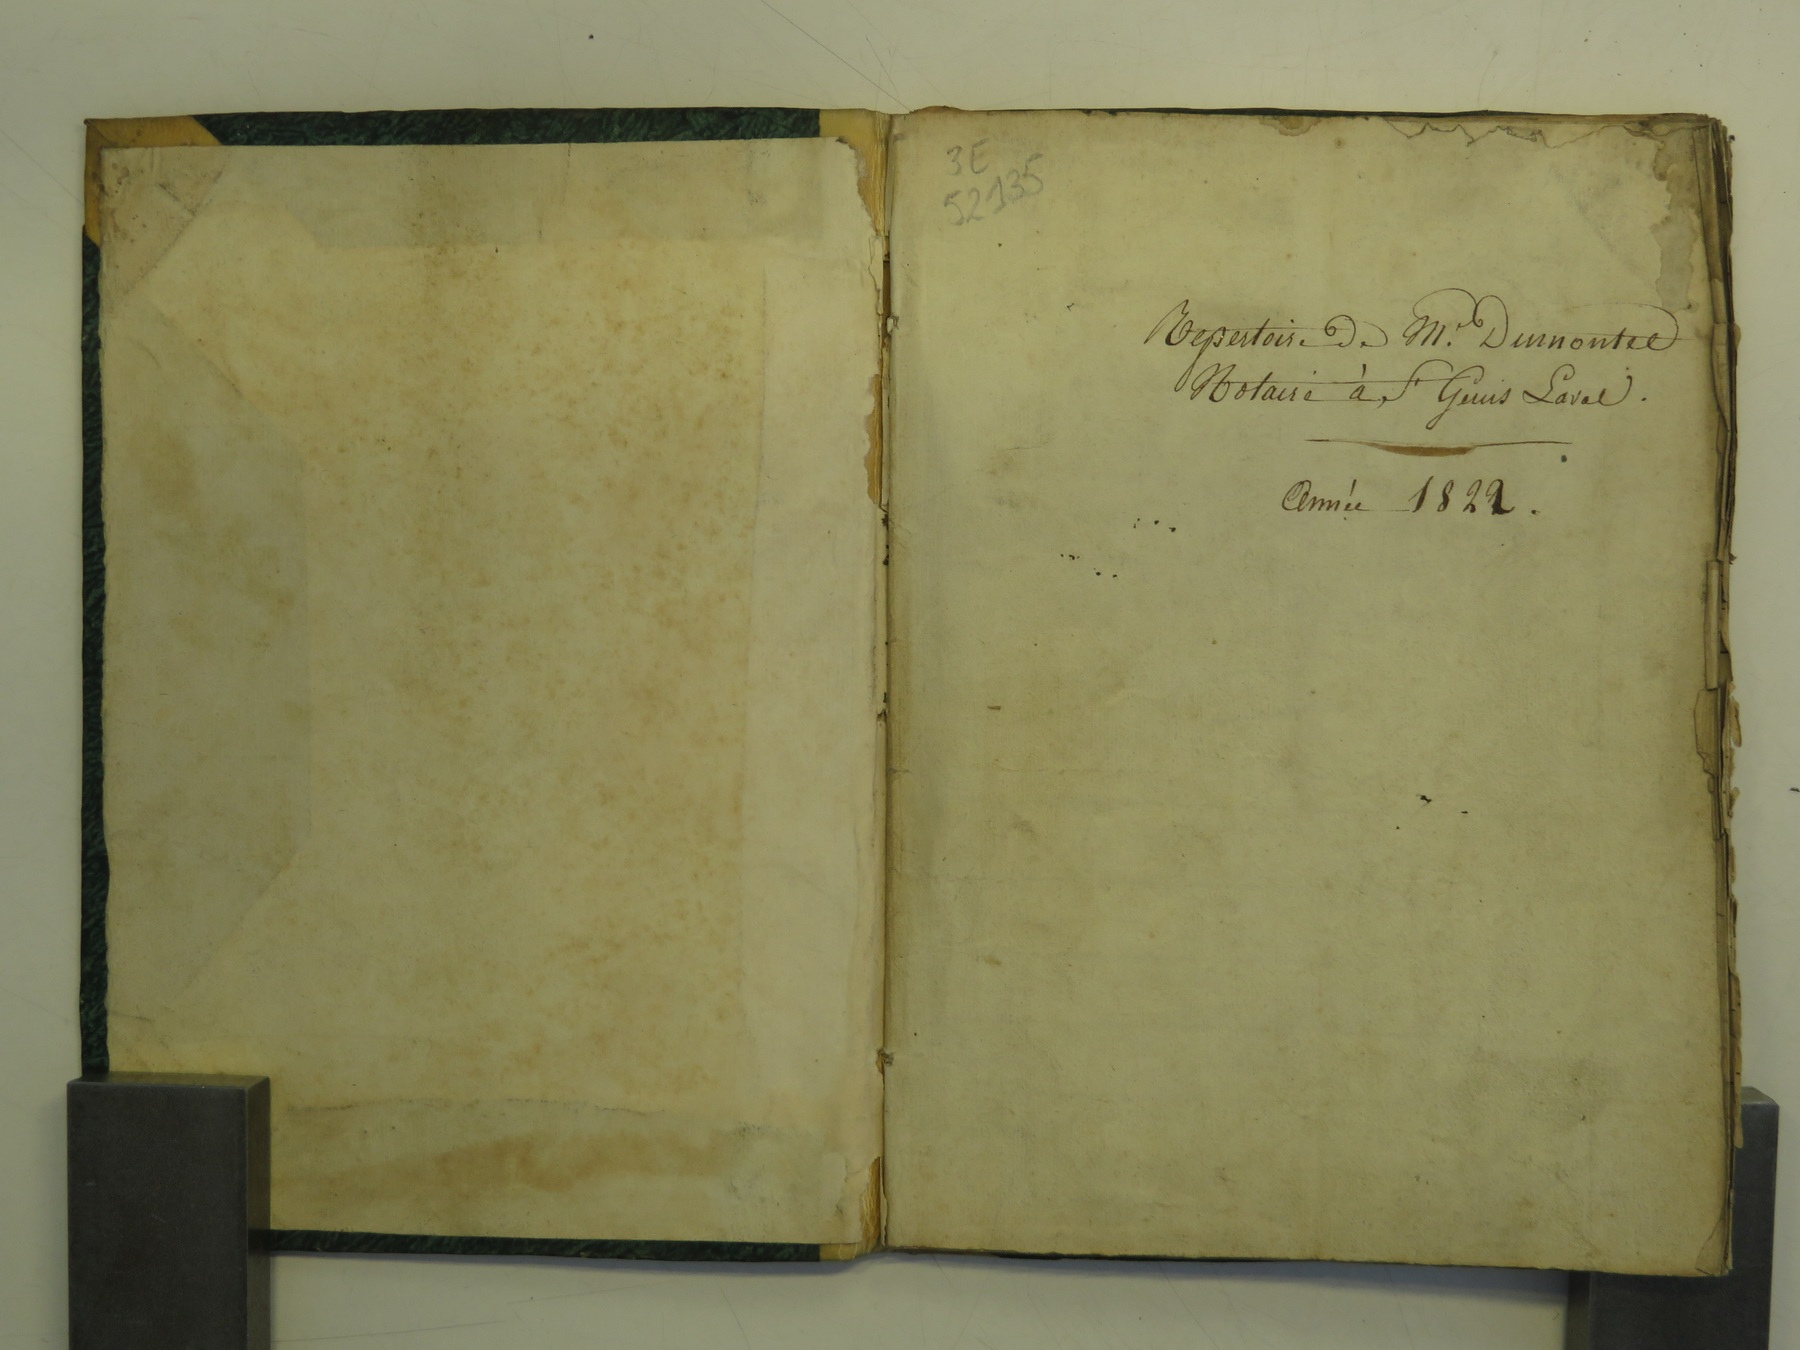 3E
52135
Repertoire de Mr. Dumontel
Notaire à St Genis Laval.
Année 1822.